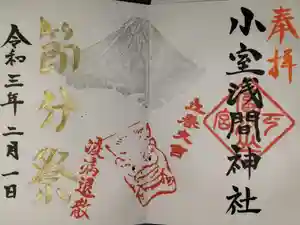 奉拝
小室浅間神社
節分祭
疫病退散
令和三年二月一日